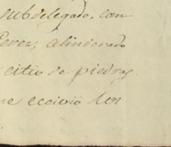 subdelegado, con
Perez, alinderado
citio de piedras
ne eccivio Don